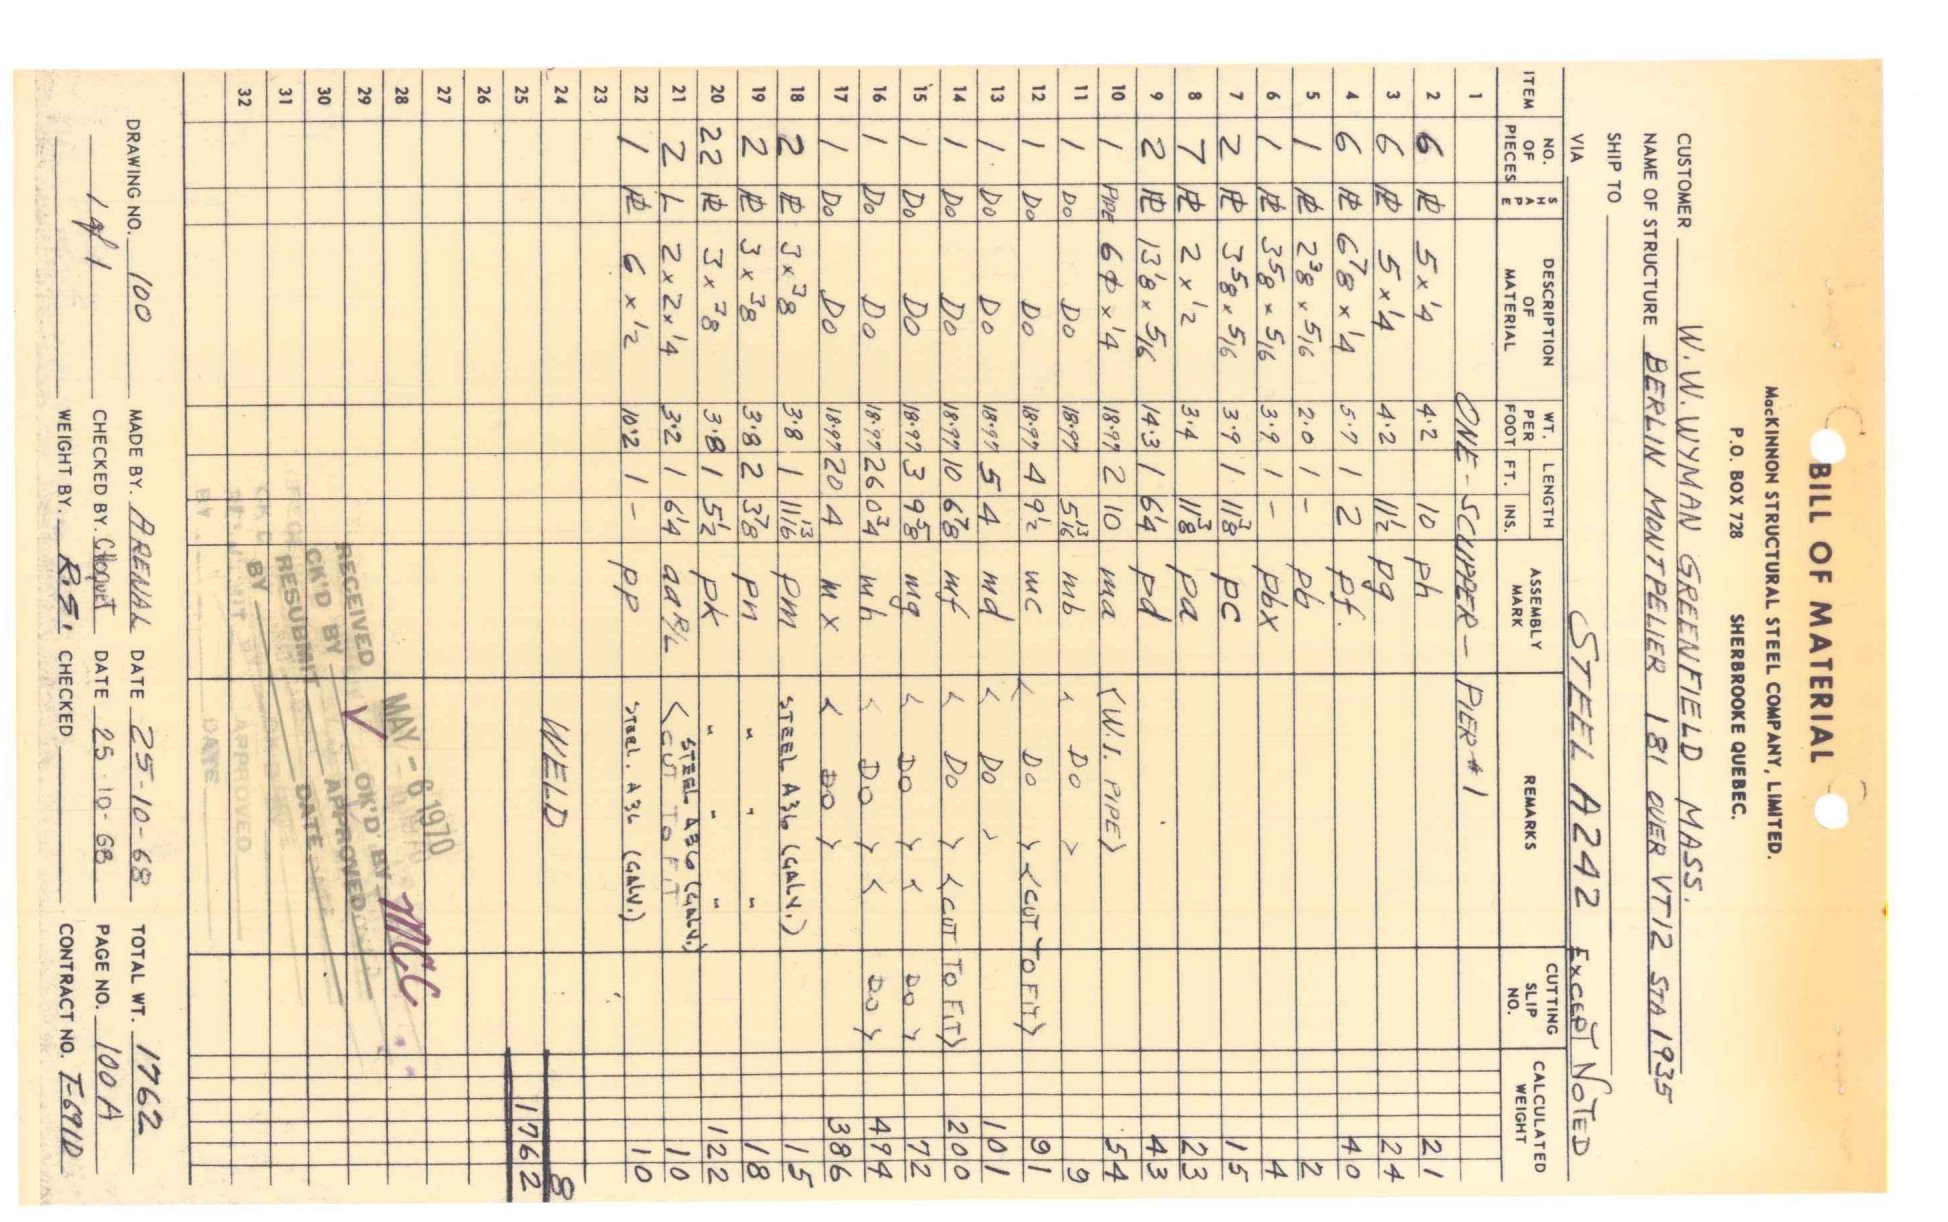 BILL OF MATERIAL
MacKINNON STRUCTURAL STEEL COMPANY, LIMITED.
P.O. BOX 728 SHERBROOKE QUEBEC.
CUSTOMER W.W. WYMAN GREENFIELD MASS.
NAME OF STRUCTURE BERLIN MONTPELIER 181 OVER VT12 STA 1935
SHIP TO
VIA STEEL A242 EXCEPT NOTED
ITEM NO. OF PIECES SHAPE DESCRIPTION OF MATERIAL WT. PER FOOT LENGTH FT. INS. ASSEMBLY MARK REMARKS CUTTING SLIP NO. CALCULATED WEIGHT
1 ONE-SCUPPER-PIER #1
2 6 PL 5 x 1/4 4.2 10 ph 21
3 6 PL 5 x 1/4 4.2 11 1/2 pg 24
4 6 PL 6 7/8 x 1/4 5.7 1 2 pf. 40
5 1 PL 2 3/8 x 5/16 2.0 1 - pb 2
6 1 PL 3 5/8 x 5/16 3.9 1 - pbx 4
7 2 PL 3 5/8 x 5/16 3.9 1 11 3/8 pc 15
8 7 PL 2 x 1/2 3.4 11 3/8 pa 23
9 2 PL 13 1/8 x 5/16 14.3 1 6 1/4 pd 43
10 1 PIPE 6 φ x 1/4 18.97 2 10 ma (W.I. PIPE) 54
11 1 Do Do 18.97 5 13/16 mb < Do > 9
12 1 Do Do 18.97 4 9 1/2 mc < Do > <CUT TO FIT> 91
13 1 Do Do 18.97 5 4 md < Do > 101
14 1 Do Do 18.97 10 6 7/8 mf < Do > <CUT TO FIT> 200
15 1 Do Do 18.97 3 9 5/8 mg < Do > < Do > 72
16 1 Do Do 18.97 26 0 3/4 mh < Do > < Do > 494
17 1 Do Do 18.97 20 4 mx < Do > 386
18 2 PL 3 x 3/8 3.8 1 11 13/16 pm STEEL A36 (GALV.) 15
19 2 PL 3 x 3/8 3.8 2 3 7/8 pn " " " 18
20 22 PL 3 x 3/8 3.8 1 5 1/2 pk " " " 122
21 2 L 2 x 2 x 1/4 3.2 1 6 1/4 aa R/L STEEL A36 (GALV.) <CUT TO FIT 10
22 1 PL 6 x 1/2 10.2 1 - pp STEEL. A36 (GALV.) 10
23
24 WELD 8
25 1762
26
27
28
29
30
31
32
MAY - 6 1970
RECEIVED OK'D BY
CK'D BY APPROVED
RESUBMIT DATE
BY
APPROVED
BY DATE
M.C.
DRAWING NO. 100 MADE BY. ARENAL DATE 25-10-68 TOTAL WT. 1762
1 of 1 CHECKED BY. DATE 25-10-68 PAGE NO. 100 A
WEIGHT BY. R.S. CHECKED CONTRACT NO. T-691D